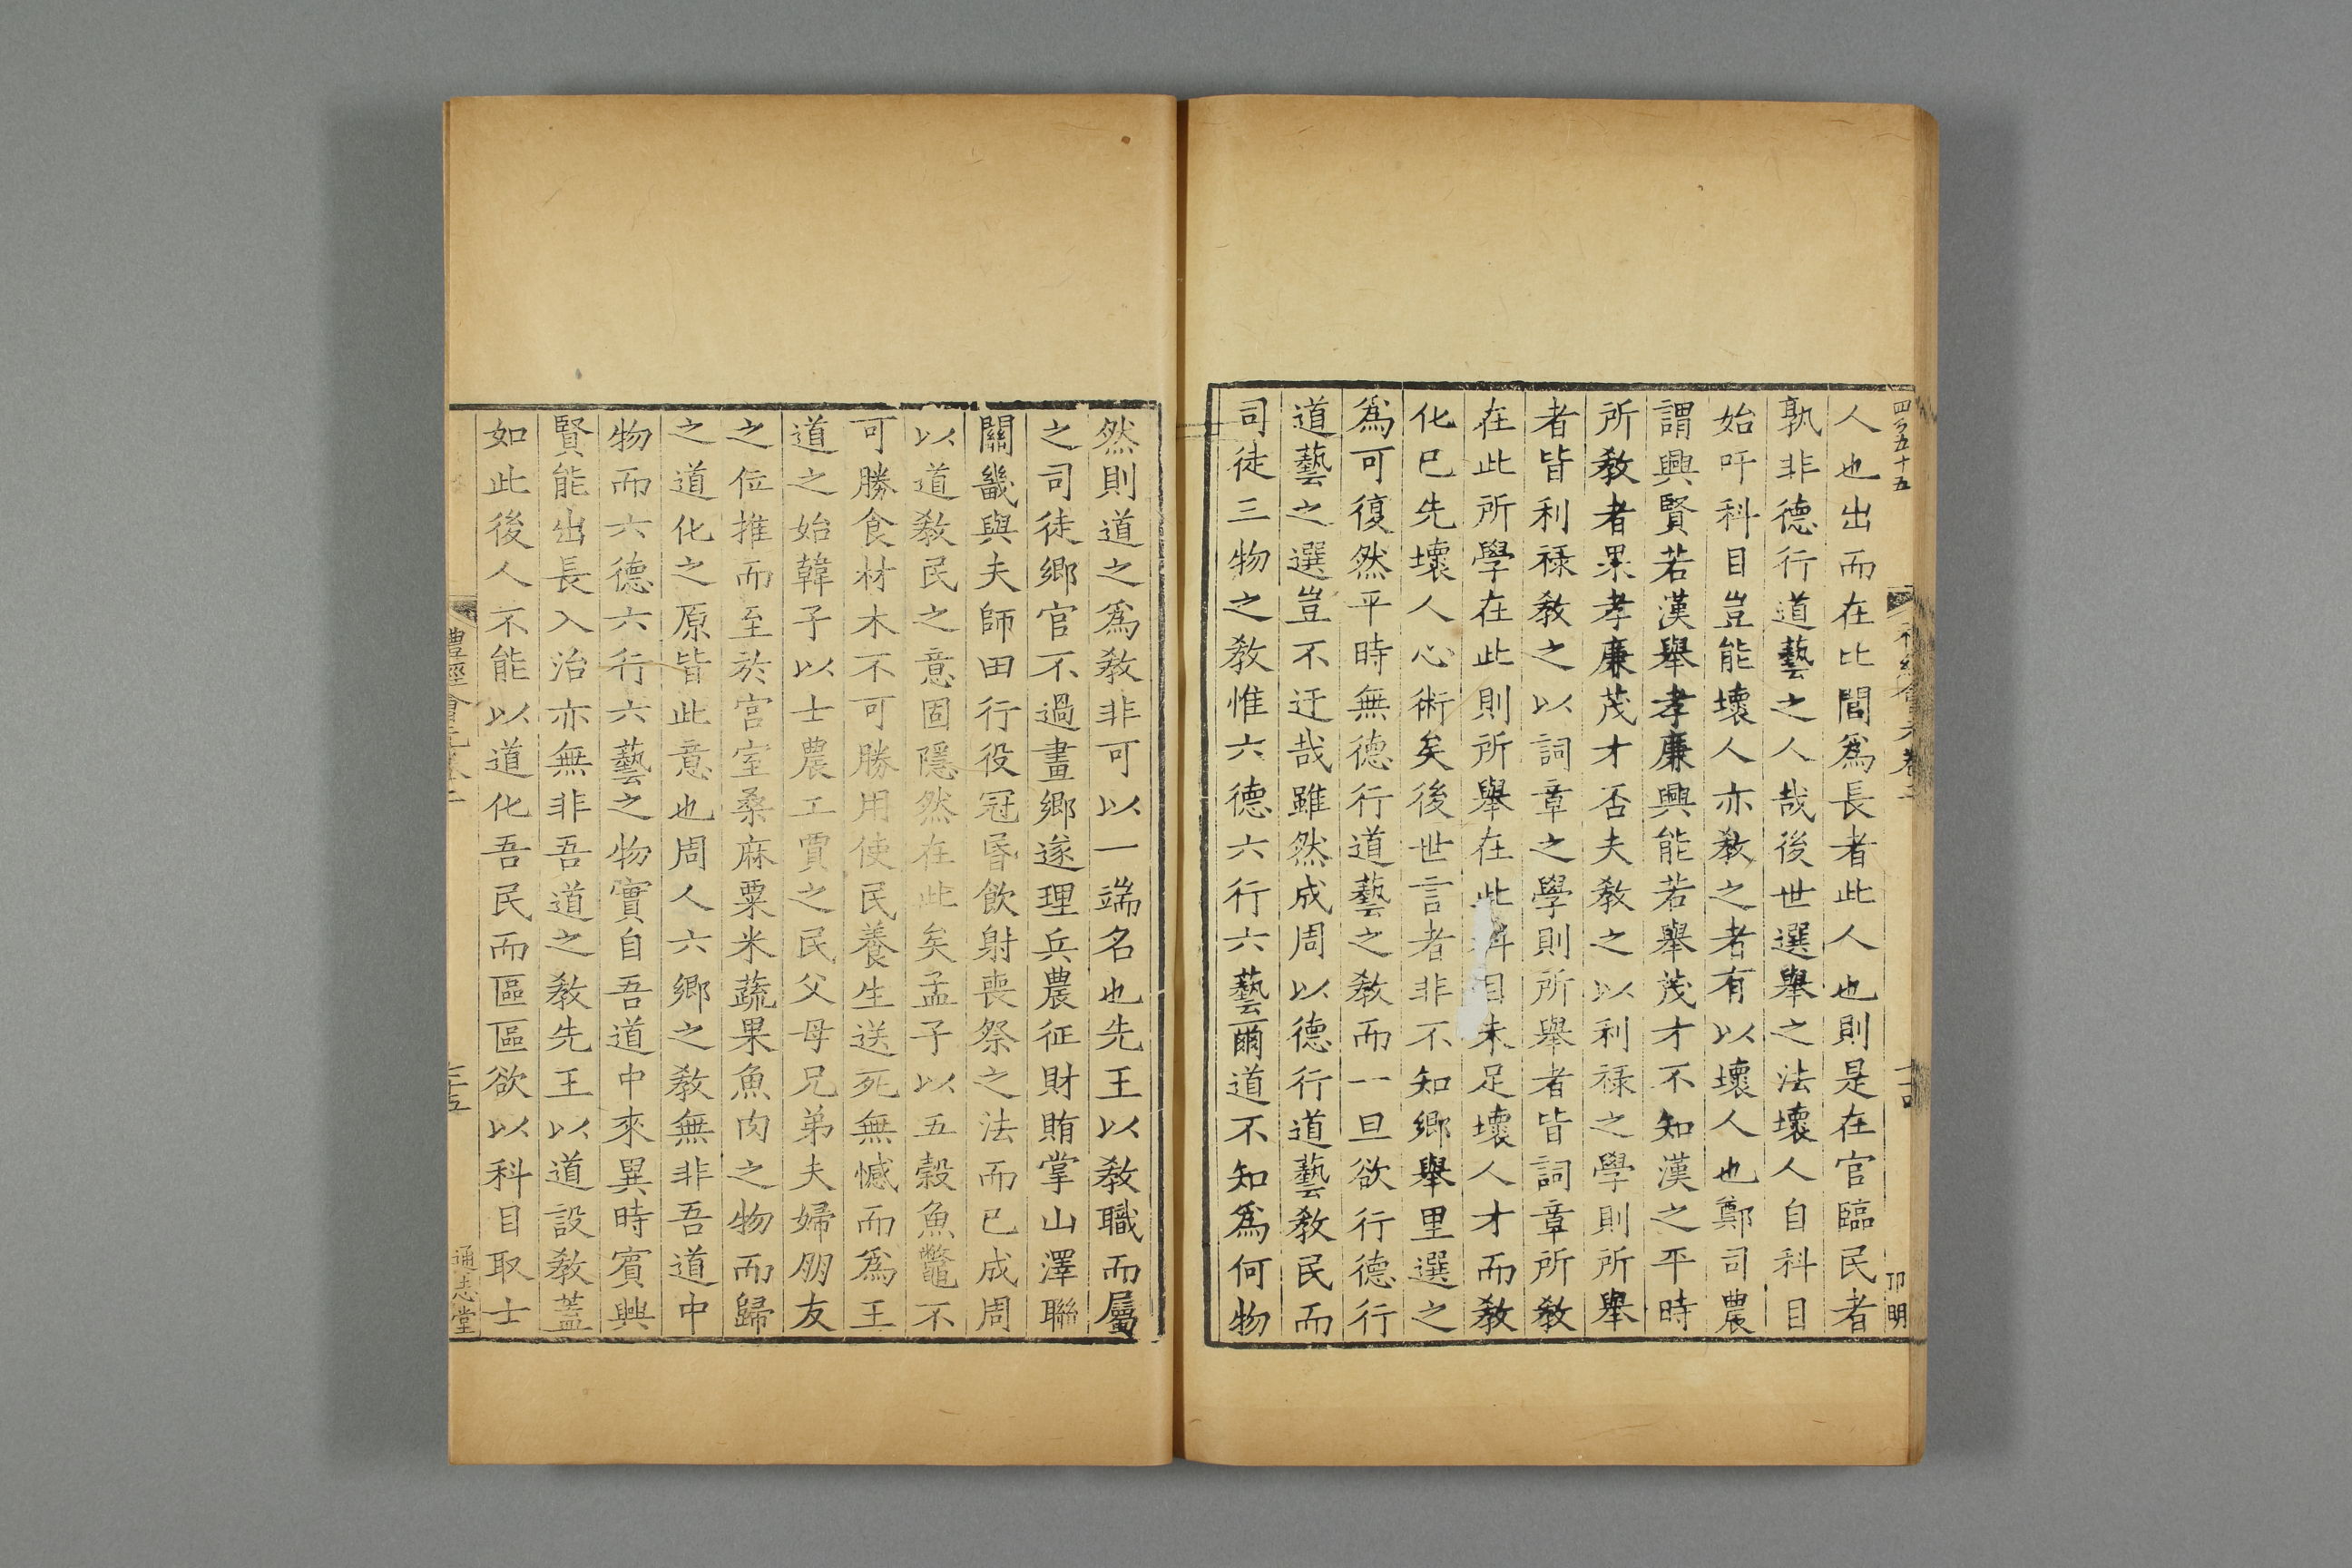 四百五十五
卷二
十四
卬明
人也出而在比閭爲長者此人也則是在官臨民者
孰非德行道藝之人哉後世選舉之法壞人自科目
始吁科目豈能壞人亦敎之者有以壞人也鄭司農
謂興賢若漢舉孝廉興能若舉茂才不知漢之平時
所敎者果孝廉茂才否夫敎之以利祿之學則所舉
者皆利祿敎之以詞章之學則所舉者皆詞章所敎
在此所學在此則所舉在此科目未足壞人才而敎
化已先壞人心術矣後世言者非不知鄉舉里選之
爲可復然平時無德行道藝之敎而一旦欲行德行
道藝之選豈不迂哉雖然成周以德行道藝敎民而
司徒三物之敎惟六德六行六藝爾道不知爲何物
然則道之爲敎非可以一端名也先王以敎職而屬
之司徒鄉官不過畫鄉遂理兵農征財賄掌山澤聯
關畿與夫師田行役冠昏飲射喪祭之法而已成周
以道敎民之意固隱然在此矣孟子以五榖魚鼈不
可勝食材木不可勝用使民養生送死無憾而爲王
道之始韓子以士農工賈之民父母兄弟夫婦朋友
之位推而至於宮室桑麻粟米蔬果魚肉之物而歸
之道化之原皆此意也周人六鄉之敎無非吾道中
物而六德六行六藝之物實自吾道中來異時賓興
賢能出長入治亦無非吾道之敎先王以道設敎蓋
如此後人不能以道化吾民而區區欲以科目取士
禮經會元卷二
十五
通志堂